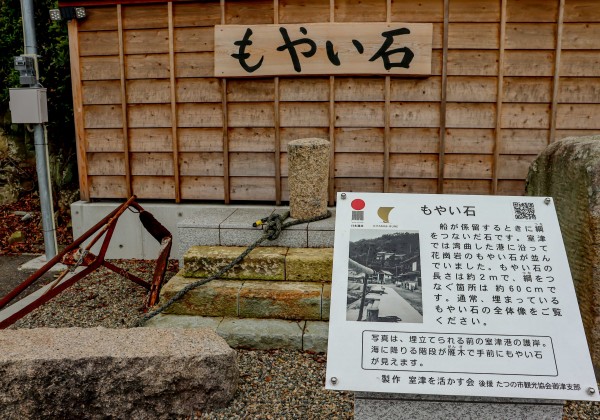 もやい石
もやい石
船が係留するときに綱
をつないだ石です。室津
では湾曲した港に沿って
花崗岩のもやい石が並ん
でいました。もやい石の
長さは約２ｍで、綱をつ
なぐ箇所は約６０ｃｍで
す。通常、埋まっている
もやい石の全体像をご覧
ください。
写真は、埋立てられる前の室津港の護岸。
海に降りる階段が雁木で手前にもやい石
が見えます。
製作 室津を活かす会 後援 たつの市観光協会御津支部